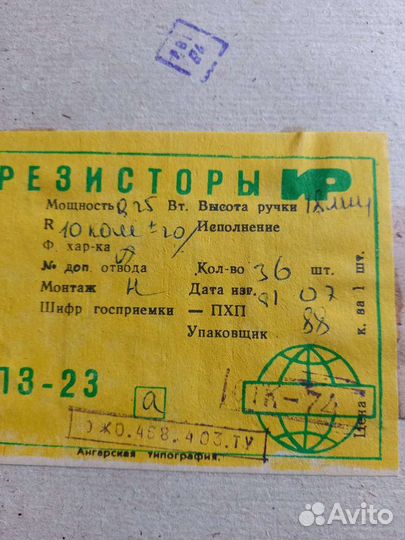 РЕЗИСТОРЫ
Мощность 0,25 Вт. Высота ручки 12мм
R 10 ком ± 20% Исполнение
Ф. хар-ка А
№ доп. отвода Кол-во 36 шт.
Монтаж Н Дата изг. 91 07
Шифр госприемки — ПХП
Упаковщик 88
ПЗ-23
а
ОТК-74
Цена к. за 1 шт.
ОЖО.468.403.ТУ
Ангарская типография.
Avito